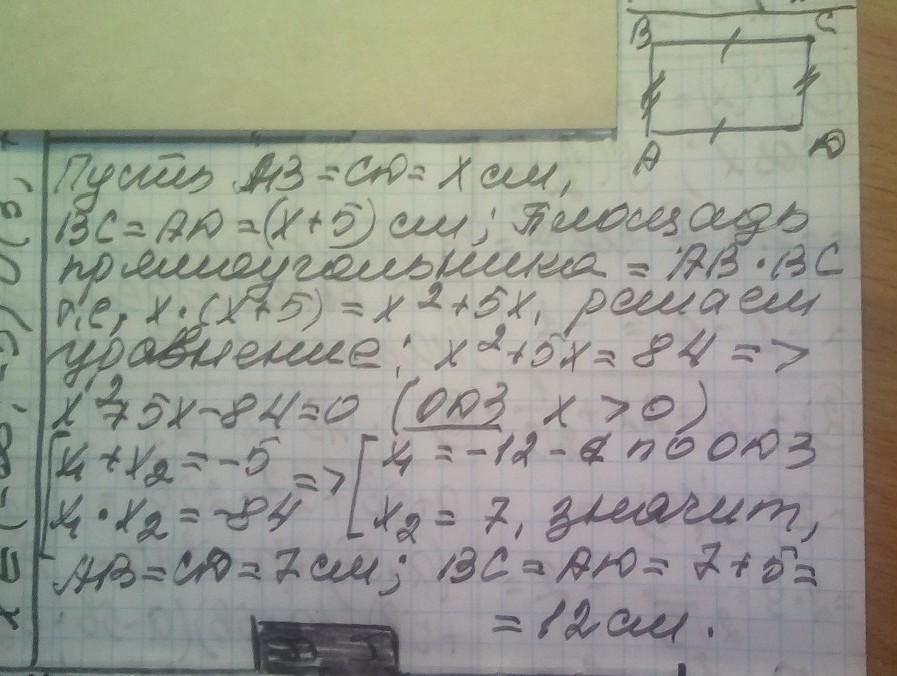 B C
A D
Пусть AB = CD = x см,
BC = AD = (x+5) см; Площадь
прямоугольника = AB · BC
т.е. x · (x+5) = x² + 5x, решаем
уравнение: x² + 5x = 84 =>
x² + 5x - 84 = 0 (ОДЗ x > 0)
x₁ + x₂ = -5 => x₁ = -12 - по ОДЗ
x₁ · x₂ = -84 x₂ = 7, значит,
AB = CD = 7 см; BC = AD = 7 + 5 =
= 12 см.